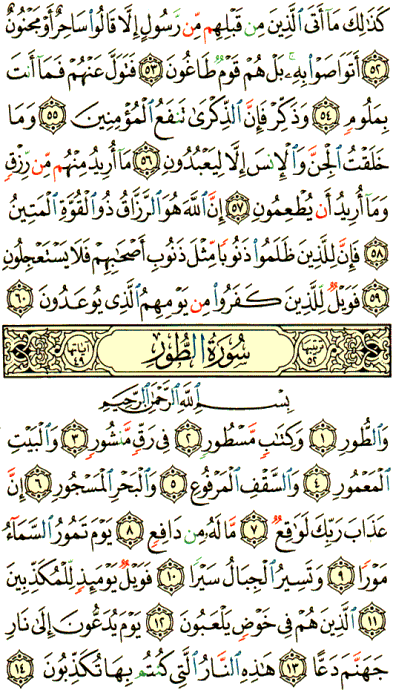 كَذَٰلِكَ مَآ أَتَى ٱلَّذِينَ مِن قَبْلِهِم مِّن رَّسُولٍ إِلَّا قَالُوا۟ سَاحِرٌ أَوْ مَجْنُونٌ
٥٢ أَتَوَاصَوْا۟ بِهِۦ ۚ بَلْ هُمْ قَوْمٌ طَاغُونَ ٥٣ فَتَوَلَّ عَنْهُمْ فَمَآ أَنتَ
بِمَلُومٍ ٥٤ وَذَكِّرْ فَإِنَّ ٱلذِّكْرَىٰ تَنفَعُ ٱلْمُؤْمِنِينَ ٥٥ وَمَا
خَلَقْتُ ٱلْجِنَّ وَٱلْإِنسَ إِلَّا لِيَعْبُدُونِ ٥٦ مَآ أُرِيدُ مِنْهُم مِّن رِّزْقٍ
وَمَآ أُرِيدُ أَن يُطْعِمُونِ ٥٧ إِنَّ ٱللَّهَ هُوَ ٱلرَّزَّاقُ ذُو ٱلْقُوَّةِ ٱلْمَتِينُ
٥٨ فَإِنَّ لِلَّذِينَ ظَلَمُوا۟ ذَنُوبًا مِّثْلَ ذَنُوبِ أَصْحَـٰبِهِمْ فَلَا يَسْتَعْجِلُونِ
٥٩ فَوَيْلٌ لِّلَّذِينَ كَفَرُوا۟ مِن يَوْمِهِمُ ٱلَّذِى يُوعَدُونَ ٦٠
ترتيبها ٥٢ سُورَةُ الطُّورِ آياتها ٤٩
بِسْمِ ٱللَّهِ ٱلرَّحْمَـٰنِ ٱلرَّحِيمِ
وَٱلطُّورِ ١ وَكِتَـٰبٍ مَّسْطُورٍ ٢ فِى رَقٍّ مَّنشُورٍ ٣ وَٱلْبَيْتِ
ٱلْمَعْمُورِ ٤ وَٱلسَّقْفِ ٱلْمَرْفُوعِ ٥ وَٱلْبَحْرِ ٱلْمَسْجُورِ ٦ إِنَّ
عَذَابَ رَبِّكَ لَوَٰقِعٌ ٧ مَّا لَهُۥ مِن دَافِعٍ ٨ يَوْمَ تَمُورُ ٱلسَّمَآءُ
مَوْرًا ٩ وَتَسِيرُ ٱلْجِبَالُ سَيْرًا ١٠ فَوَيْلٌ يَوْمَئِذٍ لِّلْمُكَذِّبِينَ
١١ ٱلَّذِينَ هُمْ فِى خَوْضٍ يَلْعَبُونَ ١٢ يَوْمَ يُدَعُّونَ إِلَىٰ نَارِ
جَهَنَّمَ دَعًّا ١٣ هَـٰذِهِ ٱلنَّارُ ٱلَّتِى كُنتُم بِهَا تُكَذِّبُونَ ١٤